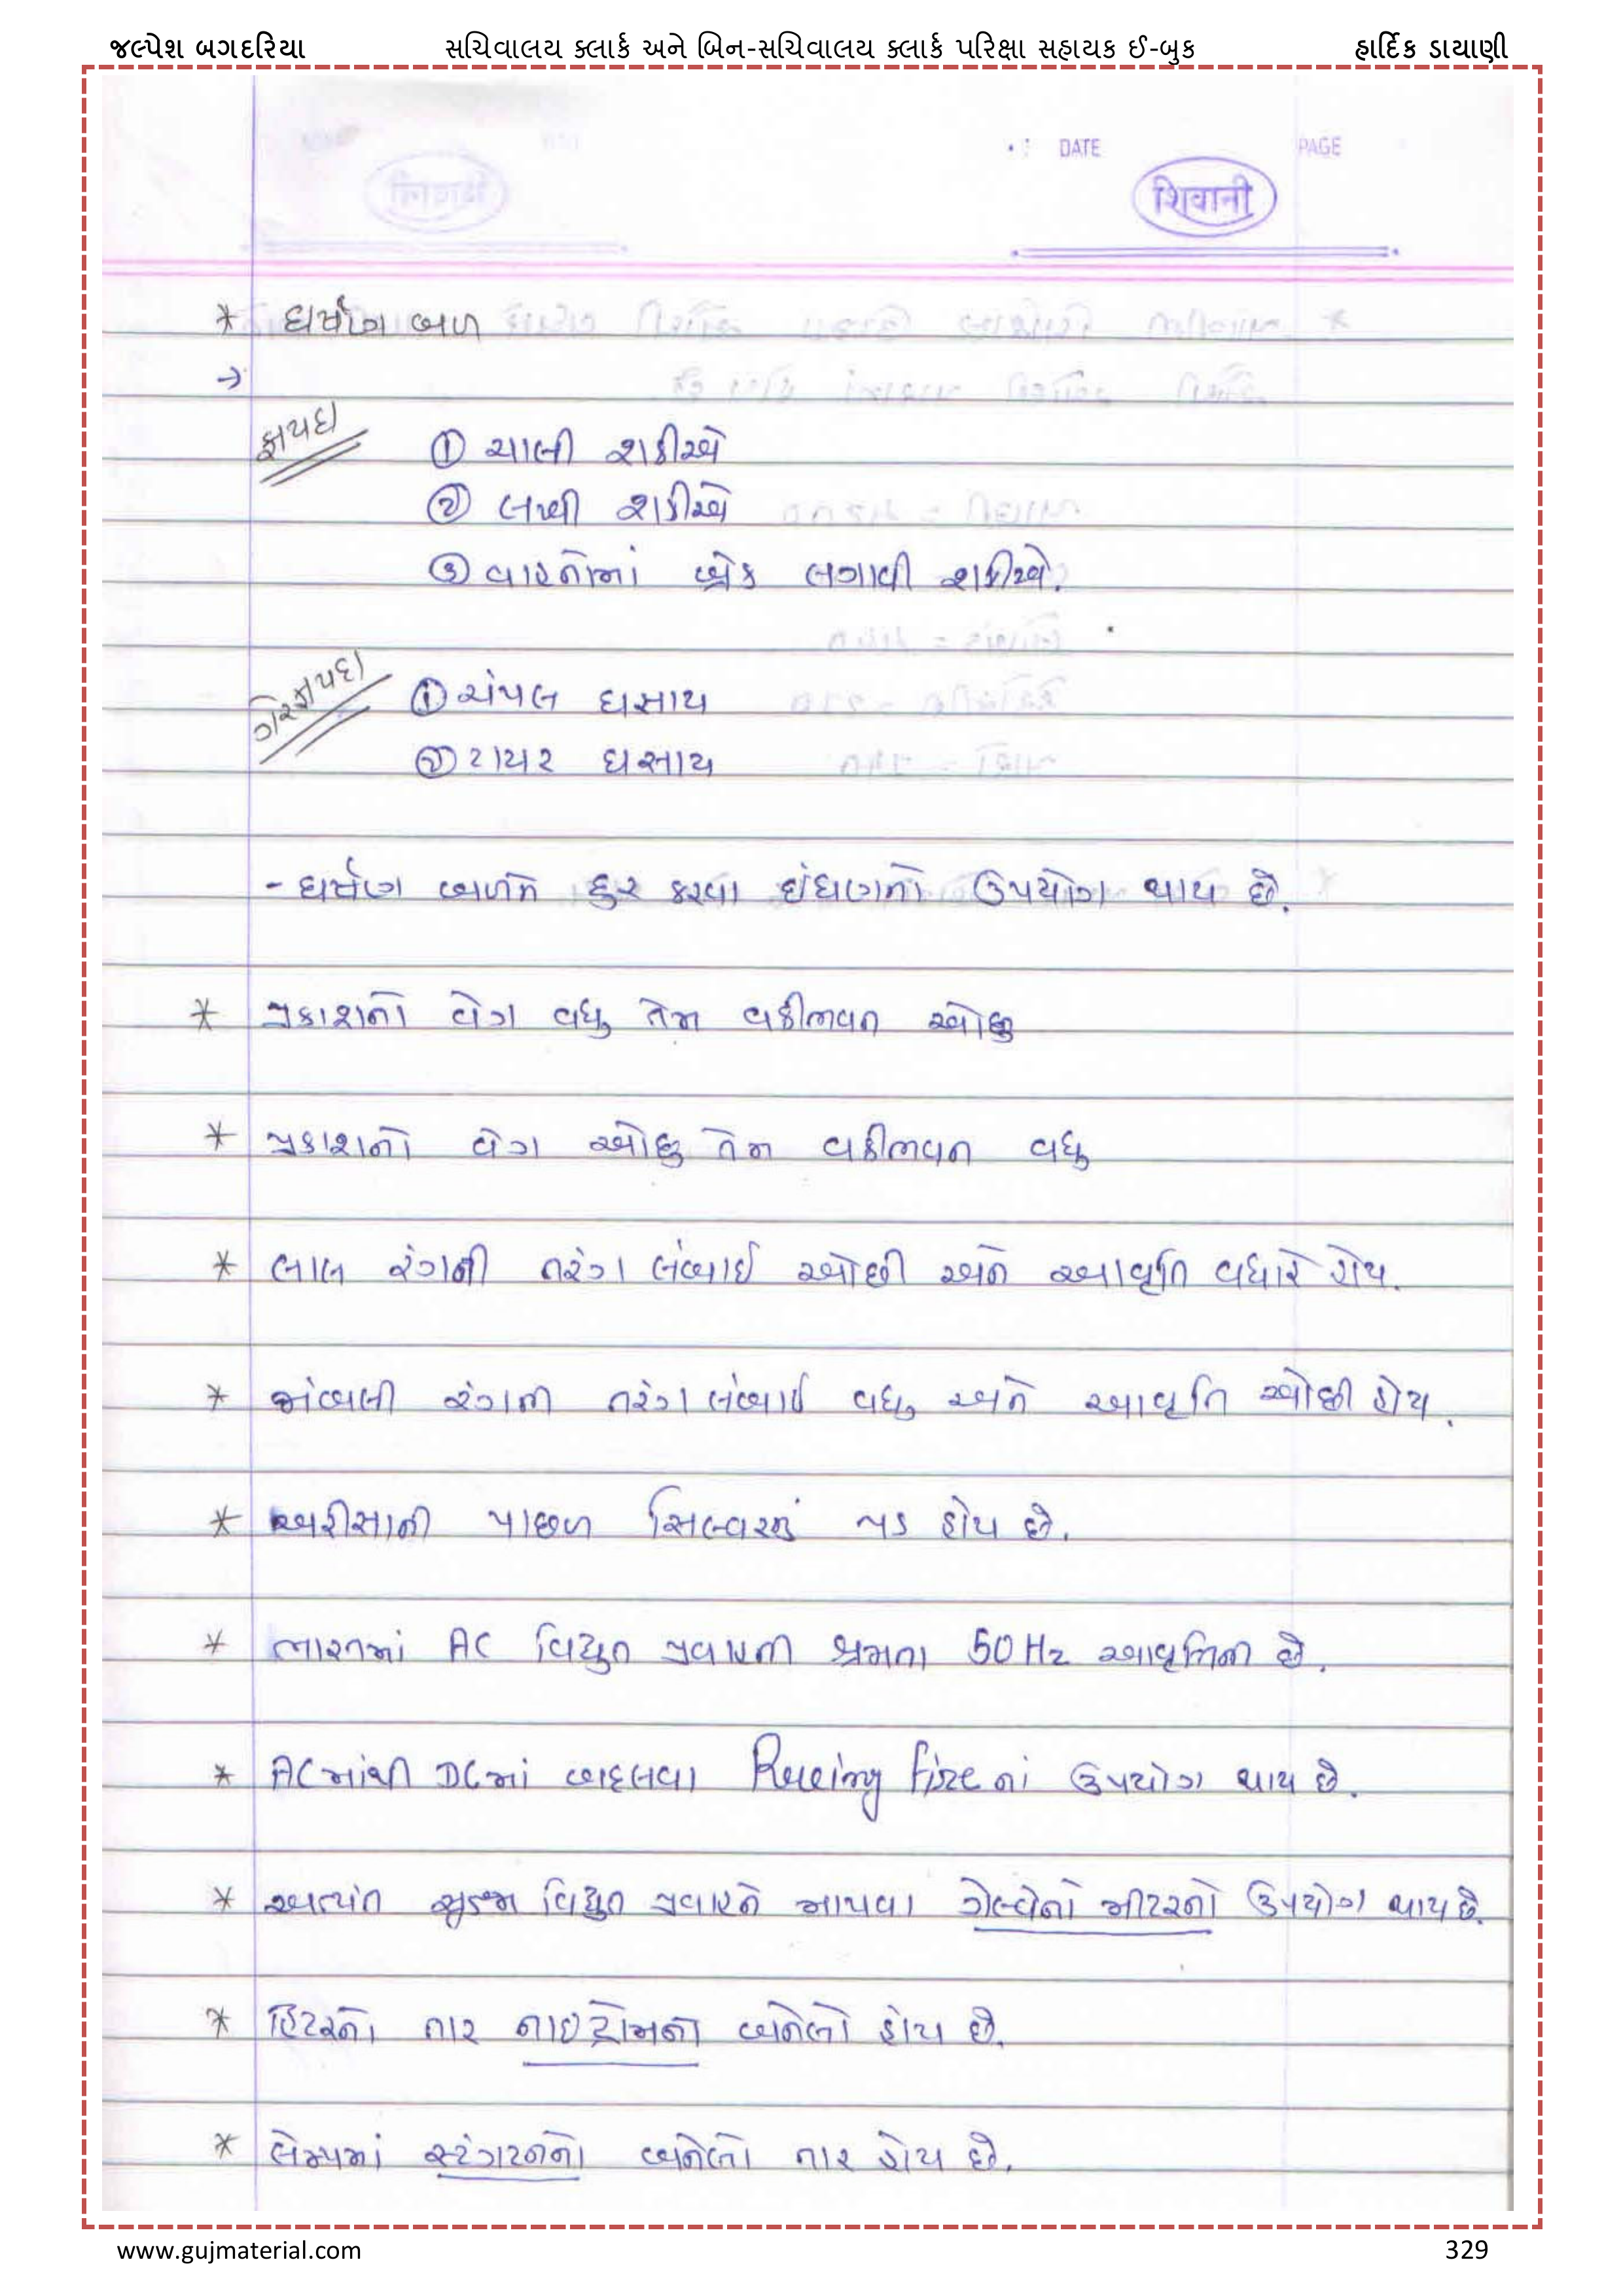 જલ્પેશ બગદરિયા સચિવાલય ક્લાર્ક અને બિન-સચિવાલય ક્લાર્ક પરિક્ષા સહાયક ઈ-બુક હાર્દિક ડાયાણી
DATE PAGE
शिवानी
* ઘર્ષણ બળ
→
ફાયદા
① ચાલી શકીએ
② લખી શકીએ
③ વાહનોમાં બ્રેક લગાવી શકીએ.
ગેરફાયદા
① ચંપલ ઘસાય
② ટાયર ઘસાય
- ઘર્ષણ બળને દુર કરવા ઊંઘણનો ઉપયોગ થાય છે.
* પ્રકાશનો વેગ વધુ તેમ વક્રીભવન ઓછુ
* પ્રકાશનો વેગ ઓછુ તેમ વક્રીભવન વધુ
* લાલ રંગની તરંગ લંબાઈ ઓછી અને આવૃતિ વધારે હોય.
* જાંબલી રંગની તરંગ લંબાઈ વધુ અને આવૃતિ ઓછી હોય.
* અરીસાની પાછળ સિલ્વરનું પડ હોય છે.
* ભારતમાં AC વિદ્યુત પ્રવાહની ક્ષમતા 50 Hz આવૃતિની છે.
* ACમાંથી DCમાં બદલવા નાં ઉપયોગ થાય છે.
* અત્યંત સુક્ષ્મ વિદ્યુત પ્રવાહને માપવા ગેલ્વેનો મીટરનો ઉપયોગ થાય છે.
* હિટરનો તાર નાઈક્રોમનો બનેલો હોય છે.
* લેમ્પમાં સ્ટંગટનનો બનેલો તાર હોય છે.
www.gujmaterial.com 329